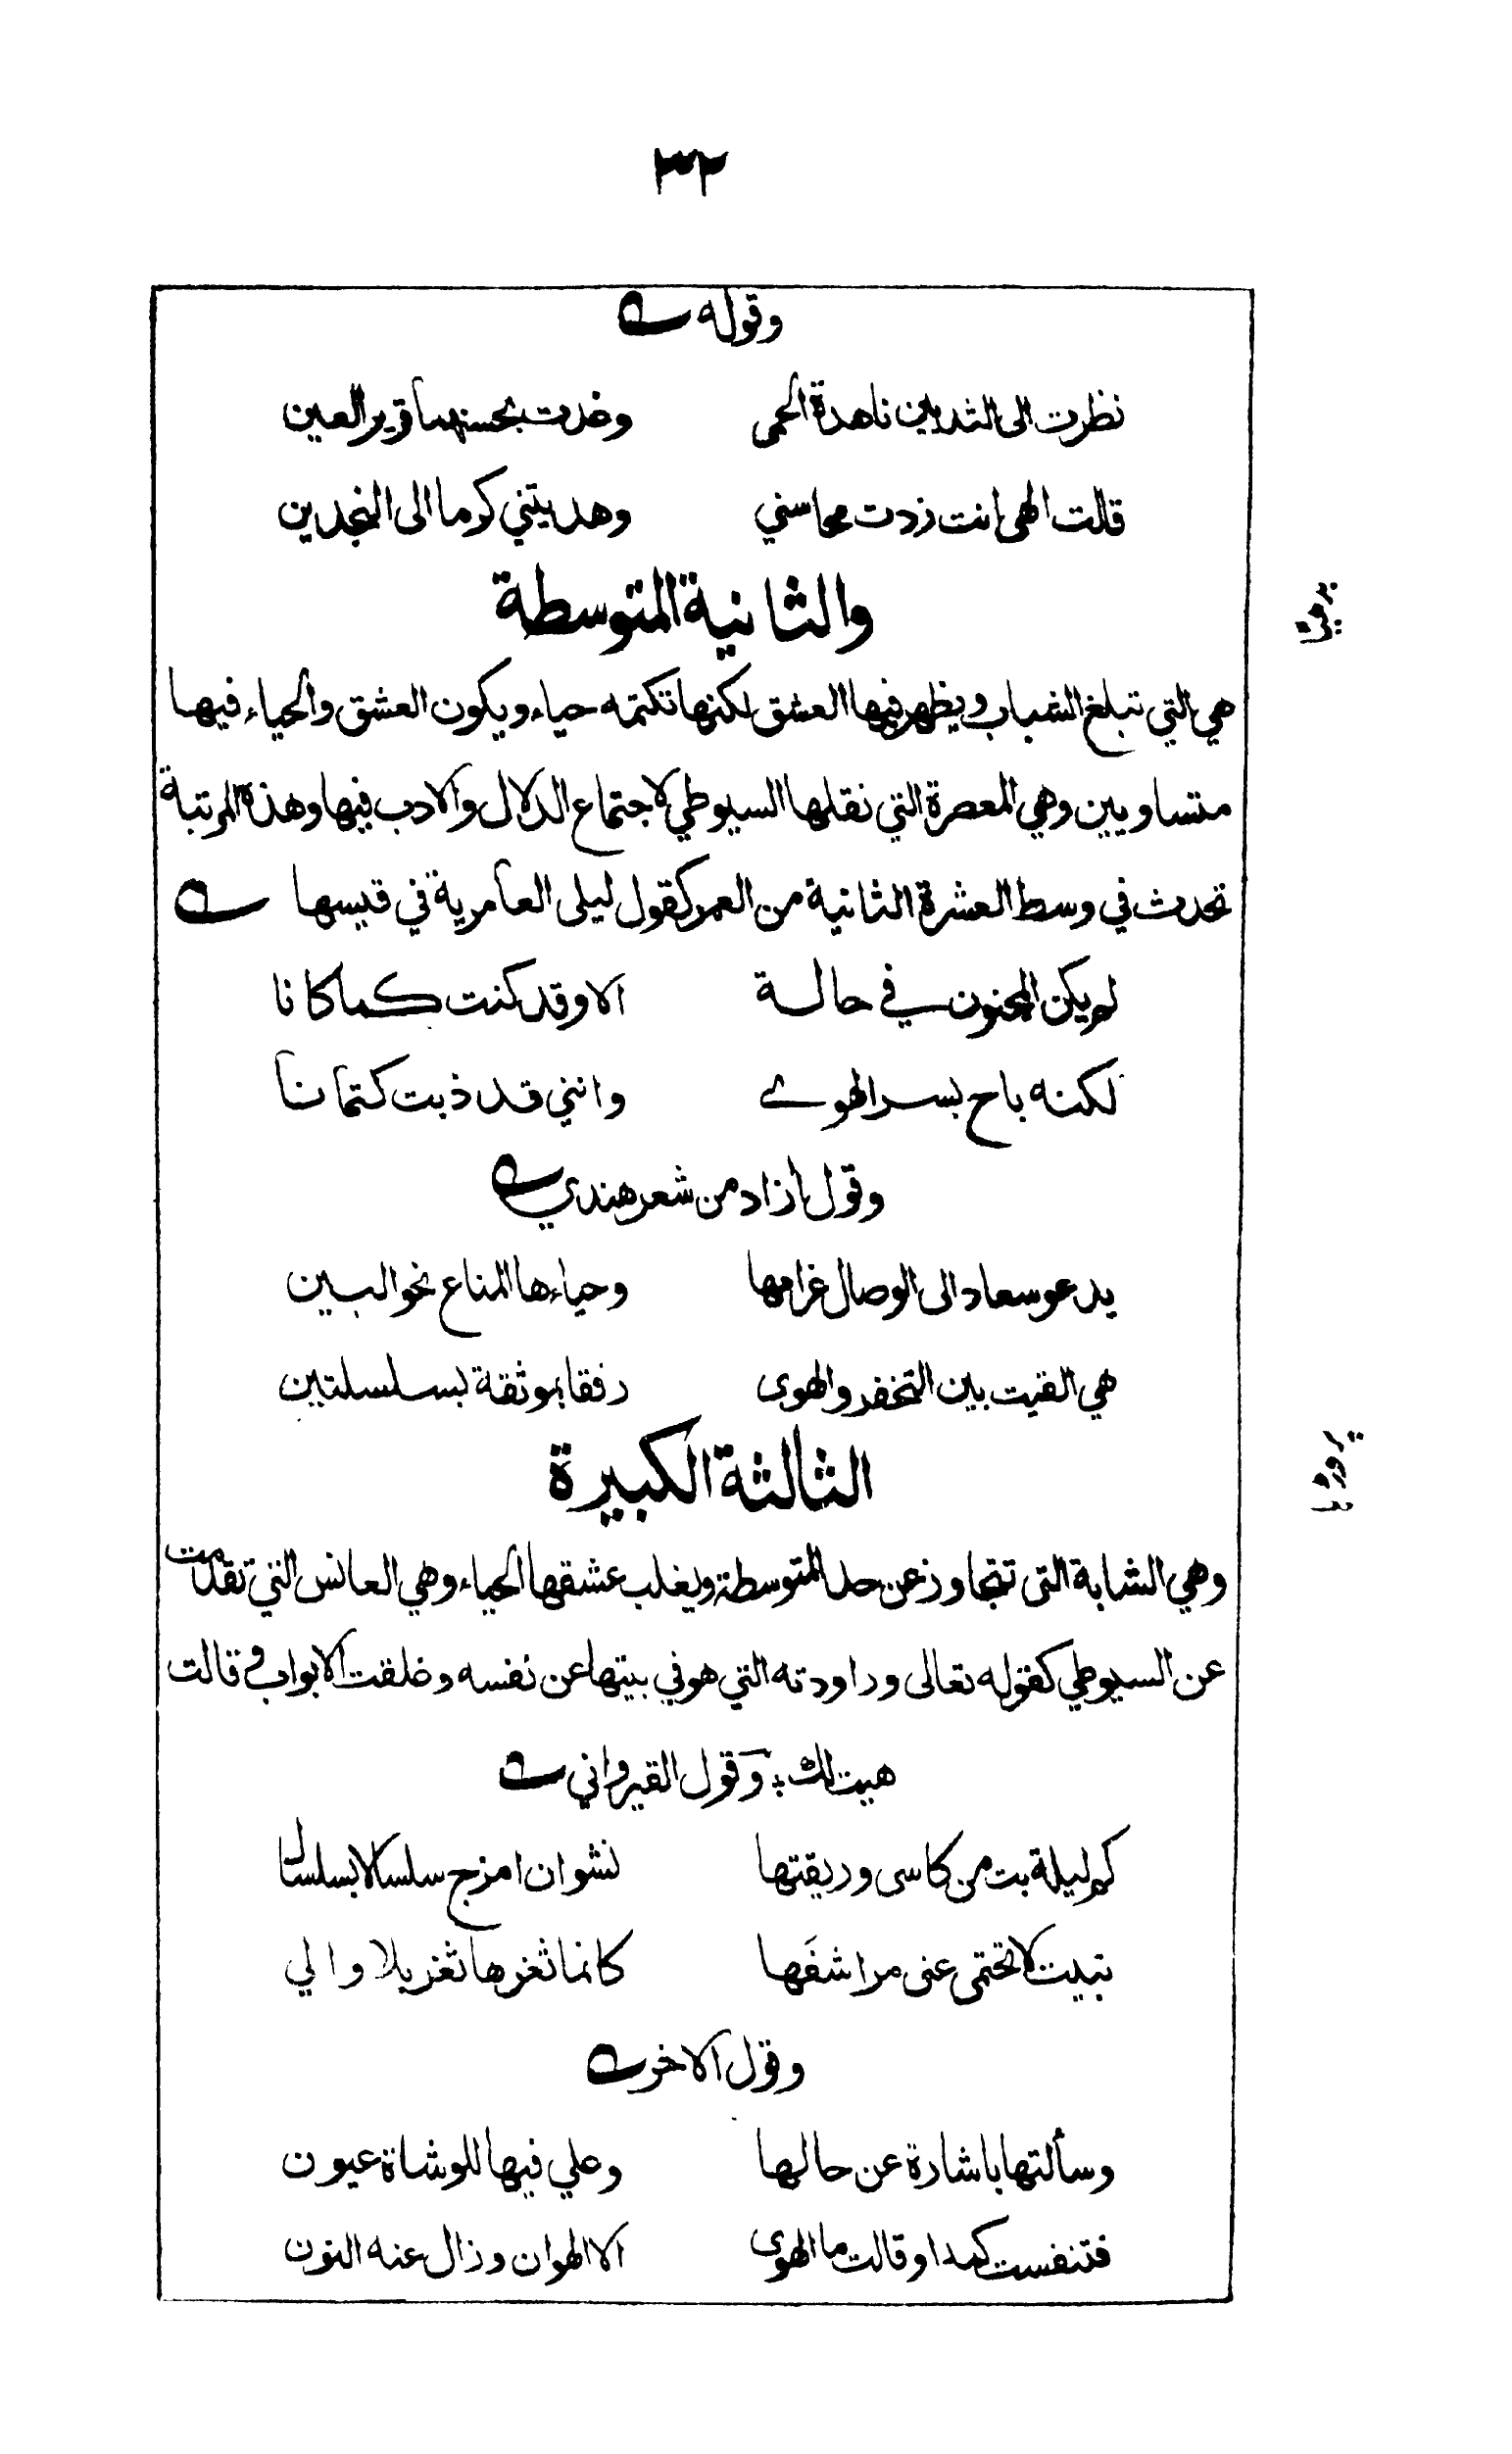 ٣٢
وقوله
نظرت الى الثديين ناهدة الحمى وغدت بحسنهما قرير العين
قالت الهى انت زدت محاسني وهديتني كرما الى النجدين
والثانية المتوسطة
هي التي تبلغ الشباب ويظهر فيها العشق لكنها تكتمه حياء ويكون العشق والحياء فيها
متساويين وهي المعصرة التي نقلها السيوطي لاجتماع الدلال والادب فيها وهذه المرتبة
تحدث في وسط العشرة الثانية من العمر كقول ليلى العامرية في قيسها
لم يكن المجنون في حالة الا وقد كنت كما كانا
لكنه باح بسر الهوے وانني قد ذبت كتمانا
وقول ازاد من شعر هندي
يدعو سعاد الى الوصال غرامها وحياءها المناع نحو البين
هي القيت بين التخفر والهوى رفقا بموثقة بسلسلتين
الثالثة الكبيرة
وهي الشابة التى تتجاوز عن حد المتوسطة ويغلب عشقها الحياء وهي العانس التي تقدمت
عن السيوطي كقوله تعالى وراودته التي هو في بيتها عن نفسه وغلقت الابواب وقالت
هيت لك ؞ وقول القيرواني
كم ليلة بت من كاسى وريقتها نشوان امزج سلسالا بسلسال
تبيت لا تحتمى عنى مراشفَها كانما ثغرها ثغر بلا والي
وقول الاخر
وسألتها باشارة عن حالها وعلي فيها للوشاة عيون
فتنفست كمدا وقالت ما الهوى الا الهوان وزال عنه النون